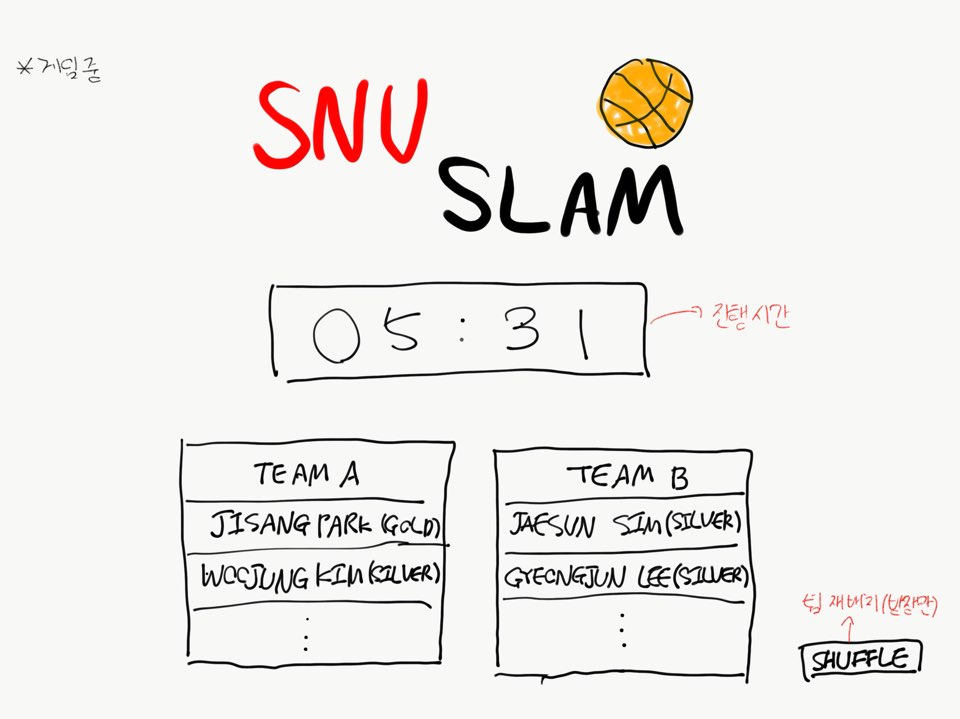 *게임중
SNU
SLAM
05:31
진행시간
TEAM A
JISANG PARK (GOLD)
WOOJUNG KIM (SILVER)
TEAM B
JAESUN SIM (SILVER)
GYEONGJUN LEE (SILVER)
팀 재배치(방장만)
SHUFFLE